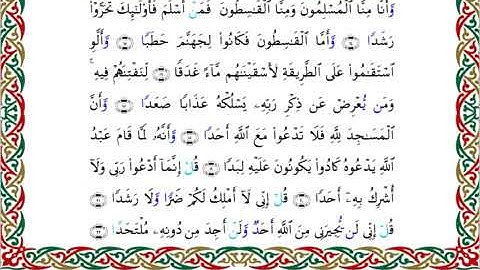 وَأَنَّا مِنَّا ٱلْمُسْلِمُونَ وَمِنَّا ٱلْقَـٰسِطُونَ فَمَنْ أَسْلَمَ فَأُو۟لَـٰٓئِكَ تَحَرَّوْا۟
رَشَدًا ۝ وَأَمَّا ٱلْقَـٰسِطُونَ فَكَانُوا۟ لِجَهَنَّمَ حَطَبًا ۝ وَأَلَّوِ
ٱسْتَقَـٰمُوا۟ عَلَى ٱلطَّرِيقَةِ لَأَسْقَيْنَـٰهُم مَّآءً غَدَقًا ۝ لِّنَفْتِنَهُمْ فِيهِ ۚ
وَمَن يُعْرِضْ عَن ذِكْرِ رَبِّهِۦ يَسْلُكْهُ عَذَابًا صَعَدًا ۝ وَأَنَّ
ٱلْمَسَـٰجِدَ لِلَّهِ فَلَا تَدْعُوا۟ مَعَ ٱللَّهِ أَحَدًا ۝ وَأَنَّهُۥ لَمَّا قَامَ عَبْدُ
ٱللَّهِ يَدْعُوهُ كَادُوا۟ يَكُونُونَ عَلَيْهِ لِبَدًا ۝ قُلْ إِنَّمَآ أَدْعُوا۟ رَبِّى وَلَآ
أُشْرِكُ بِهِۦٓ أَحَدًا ۝ قُلْ إِنِّى لَآ أَمْلِكُ لَكُمْ ضَرًّا وَلَا رَشَدًا ۝
قُلْ إِنِّى لَن يُجِيرَنِى مِنَ ٱللَّهِ أَحَدٌ وَلَنْ أَجِدَ مِن دُونِهِۦ مُلْتَحَدًا ۝